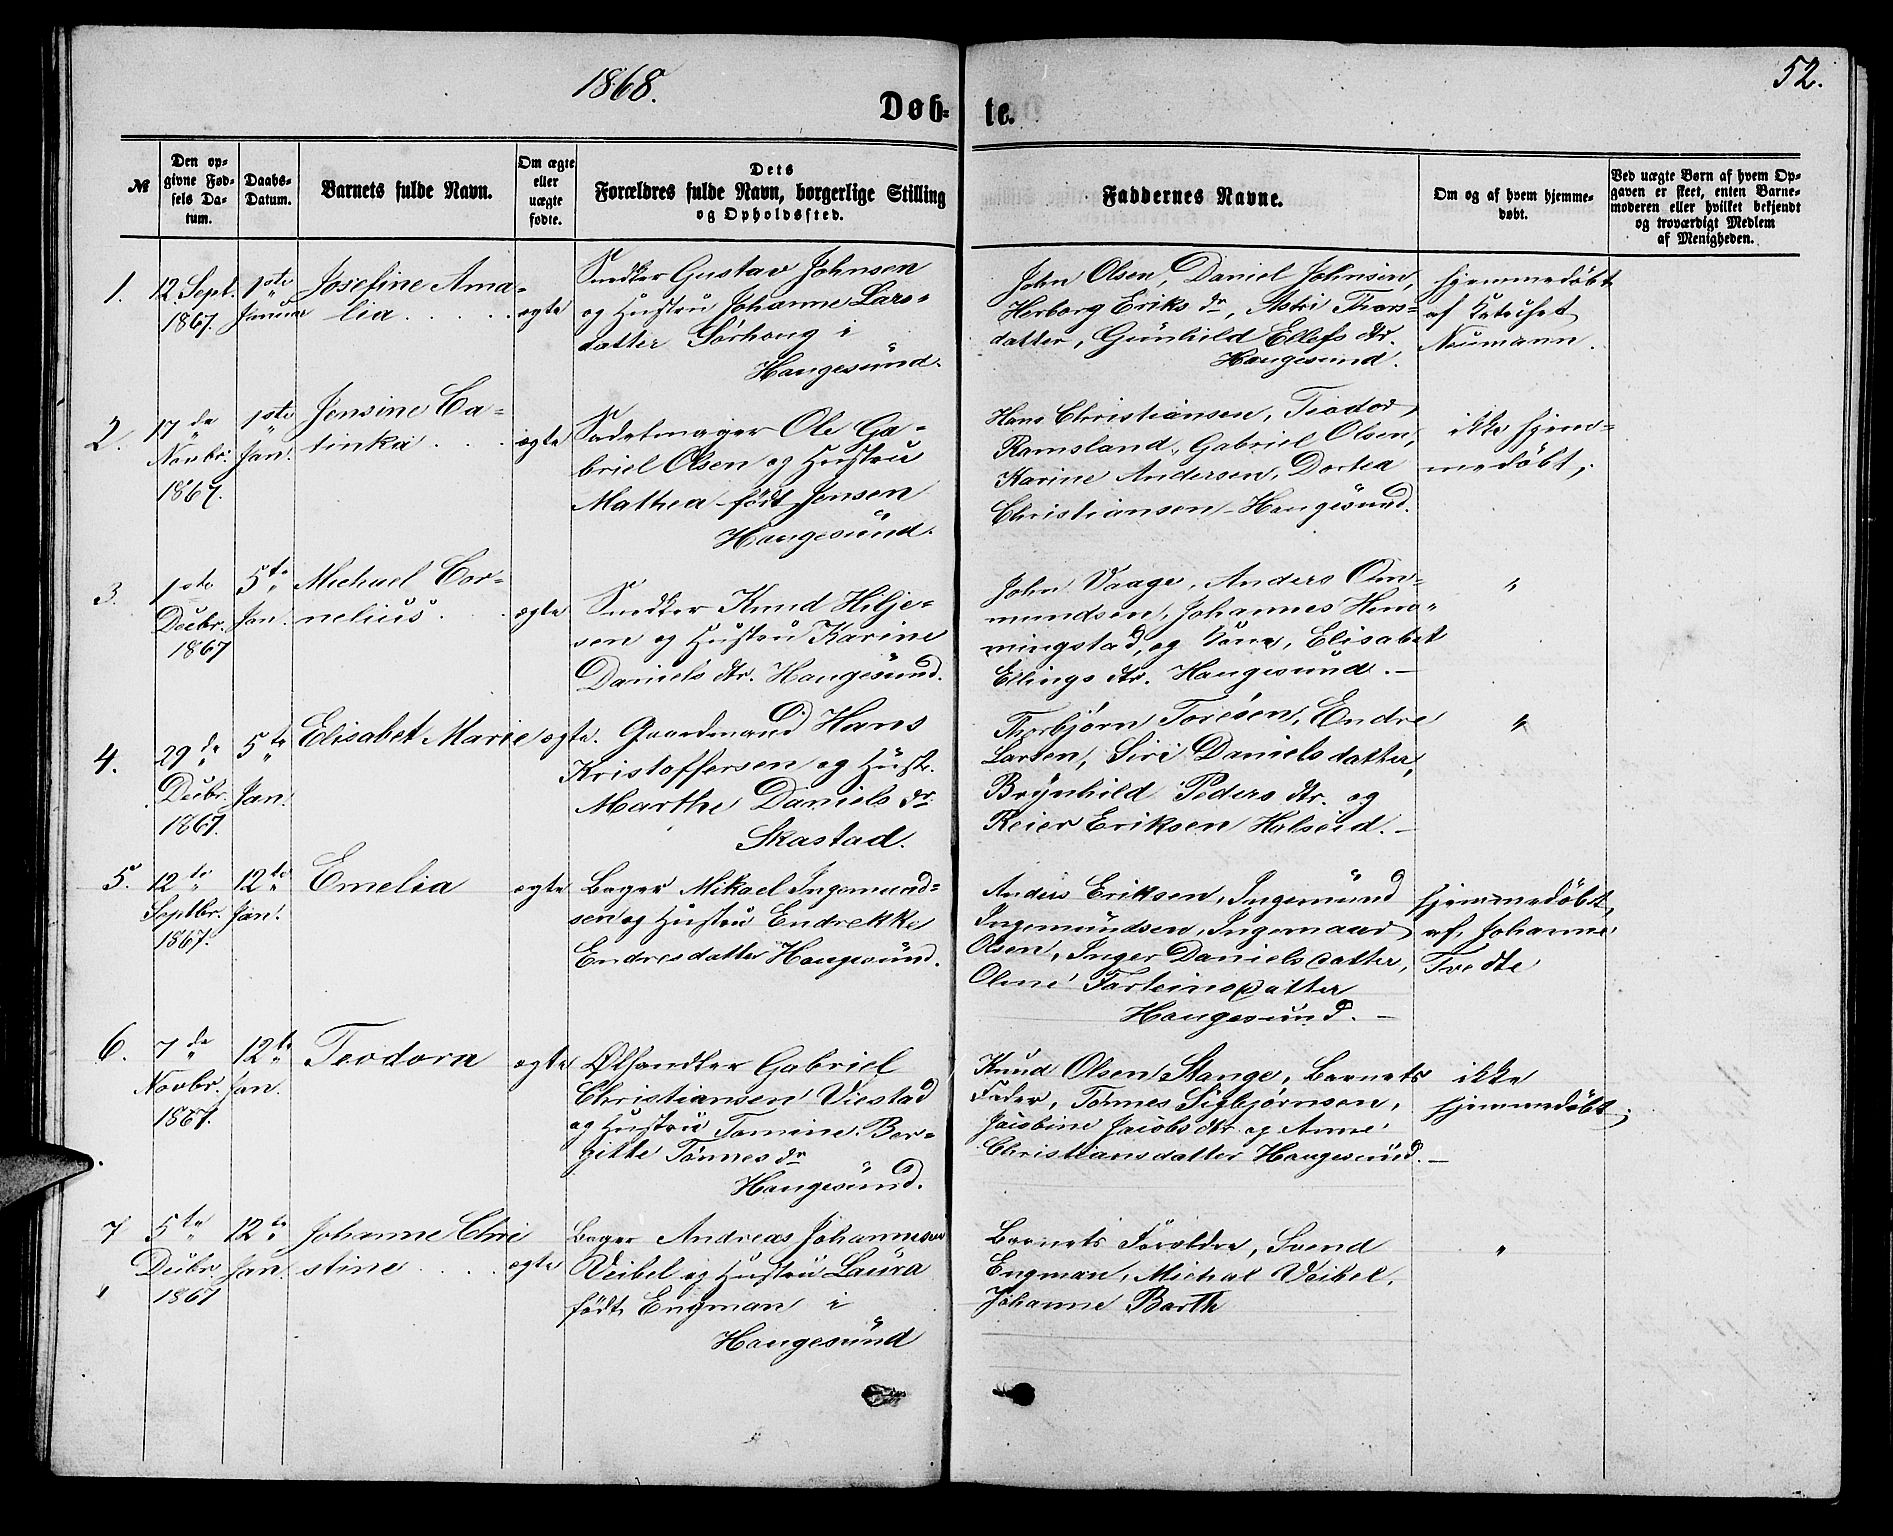 1868.
52.
Døb-
te.
№
Den op-
givne Fød-
sels Da-
tum.
Daabs-
Datum.
Barnets fulde Navn.
Om ægte
eller
uægte
fødte.
Dets
Forældres fulde Navn, borgerlige Stilling
og Opholdssted.
Faddernes Navne.
Om og af hvem hjemme-
døbt.
Ved uægte Børn af hvem Op-
gaven er skeet, enten Barne-
moderen eller hvilket bekjendt
og troværdigt Medlem
af Menigheden.
1.
12 Sept.
1867.
1ste
Januar
Josefine Ama-
lia . . . .
ægte
Snedker Gustav Johnsen
og Hustru Johanne Lars-
datter Sørhoug i
Haugesund.
John Olsen, Daniel Johnsen,
Herborg Eriks dr, Astri Thors-
datter, Gunhild Ellefs dtr.
Haugesund.
hjemmedøbt
af Katechet
Neumann.
2.
17 de
Novbr.
1867.
1ste
Jan.
Jensine Ca-
tinka . . .
ægte
Sadelmager Ole Ga-
briel Olsen og Hustru
Mathea født Jensen
Haugesund.
Hans Christiansen, Teodor
Ramsland, Gabriel Olsen,
Karine Andersen, Dortea
Christiansen - Haugesund.
ikke hjem-
medøbt,
3.
1ste
Decbr.
1867
5te
Jan.
Michael Cor-
nelius . .
ægte
Snedker Knud Hilje-
sen og Hustru Karine
Daniels dtr. Haugesund.
John Vaage, Anders Om-
mundsen, Johannes Hem-
mingstad, og Kone, Elisabet
Ellings dtr. Haugesund. -
"
4.
29 de
Decbr.
1867.
5te
Jan.
Elisabet Marie
ægte.
Gaardmand Hans
Kristoffersen og Hustr.
Marthe Daniels dr.
Skastad.
Thorbjørn Toresen, Endre
Larsen, Siri Daniels datter,
Brynhild Peders dtr. og
Reier Eriksen Halseid. -
"
5.
12 te
Septbr.
1867.
12te
Jan.
Emelia
ægte
Bager Mikael Ingemund-
sen og Hustru Endrekke
Endresdatter Haugesund.
Anders Eriksen, Ingemund
Ingemundsen, Ingemaar
Olsen, Inger Danielsdatter,
Olene Torleinsdatter
Haugesund. -
hjemmedøbt,
af, Johanne
Tvedte
6.
7 de
Novbr.
1867.
12te
Jan.
Teodora
ægte
Ølhandler Gabriel
Christiansen Viestad
og Hustru Tomine Ber-
gitte Tønnes dr
Haugesund.
Knud Olsen Stange, Barnets
Fader, Tønnes Sigbjørnsen,
Jacobine Jacobs dtr. og Anne
Christiansdatter Haugesund. -
ikke
hjemmedøbt;
7
5te
Decbr.
1867
12te
Jan.
Johanne Chri
stine . . . .
ægte
Bager Andreas Johannesen
Veibel og Hustru Laura
født Engman i
Haugesund
Barnets Forældre, Svend
Engman, Michal Veibel,
Johanne Barth
"